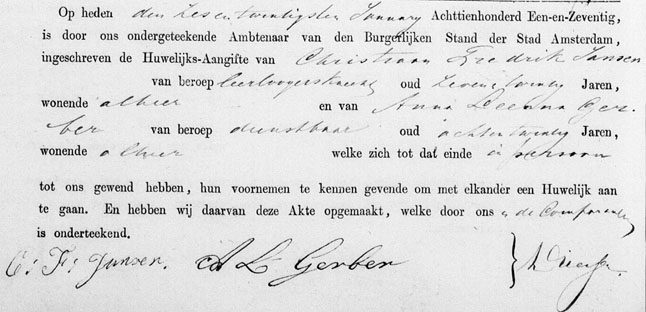 Op heden den Zesentwintigsten January Achttienhonderd Een-en-Zeventig,
is door ons ondergeteekende Ambtenaar van den Burgerlijken Stand der Stad Amsterdam,
ingeschreven de Huwelijks-Aangifte van Christiaan Fredrik Jansen
van beroep oud Zevenentwintig Jaren,
wonende alhier en van Anna Ger-
ber van beroep dienstbaar oud achtentwintig Jaren,
wonende alhier welke zich tot dat einde in persoon
tot ons gewend hebben, hun voornemen te kennen gevende om met elkander een Huwelijk aan
te gaan. En hebben wij daarvan deze Akte opgemaakt, welke door ons en de Comparanten
is onderteekend.
C: F: Jansen. A L Gerber